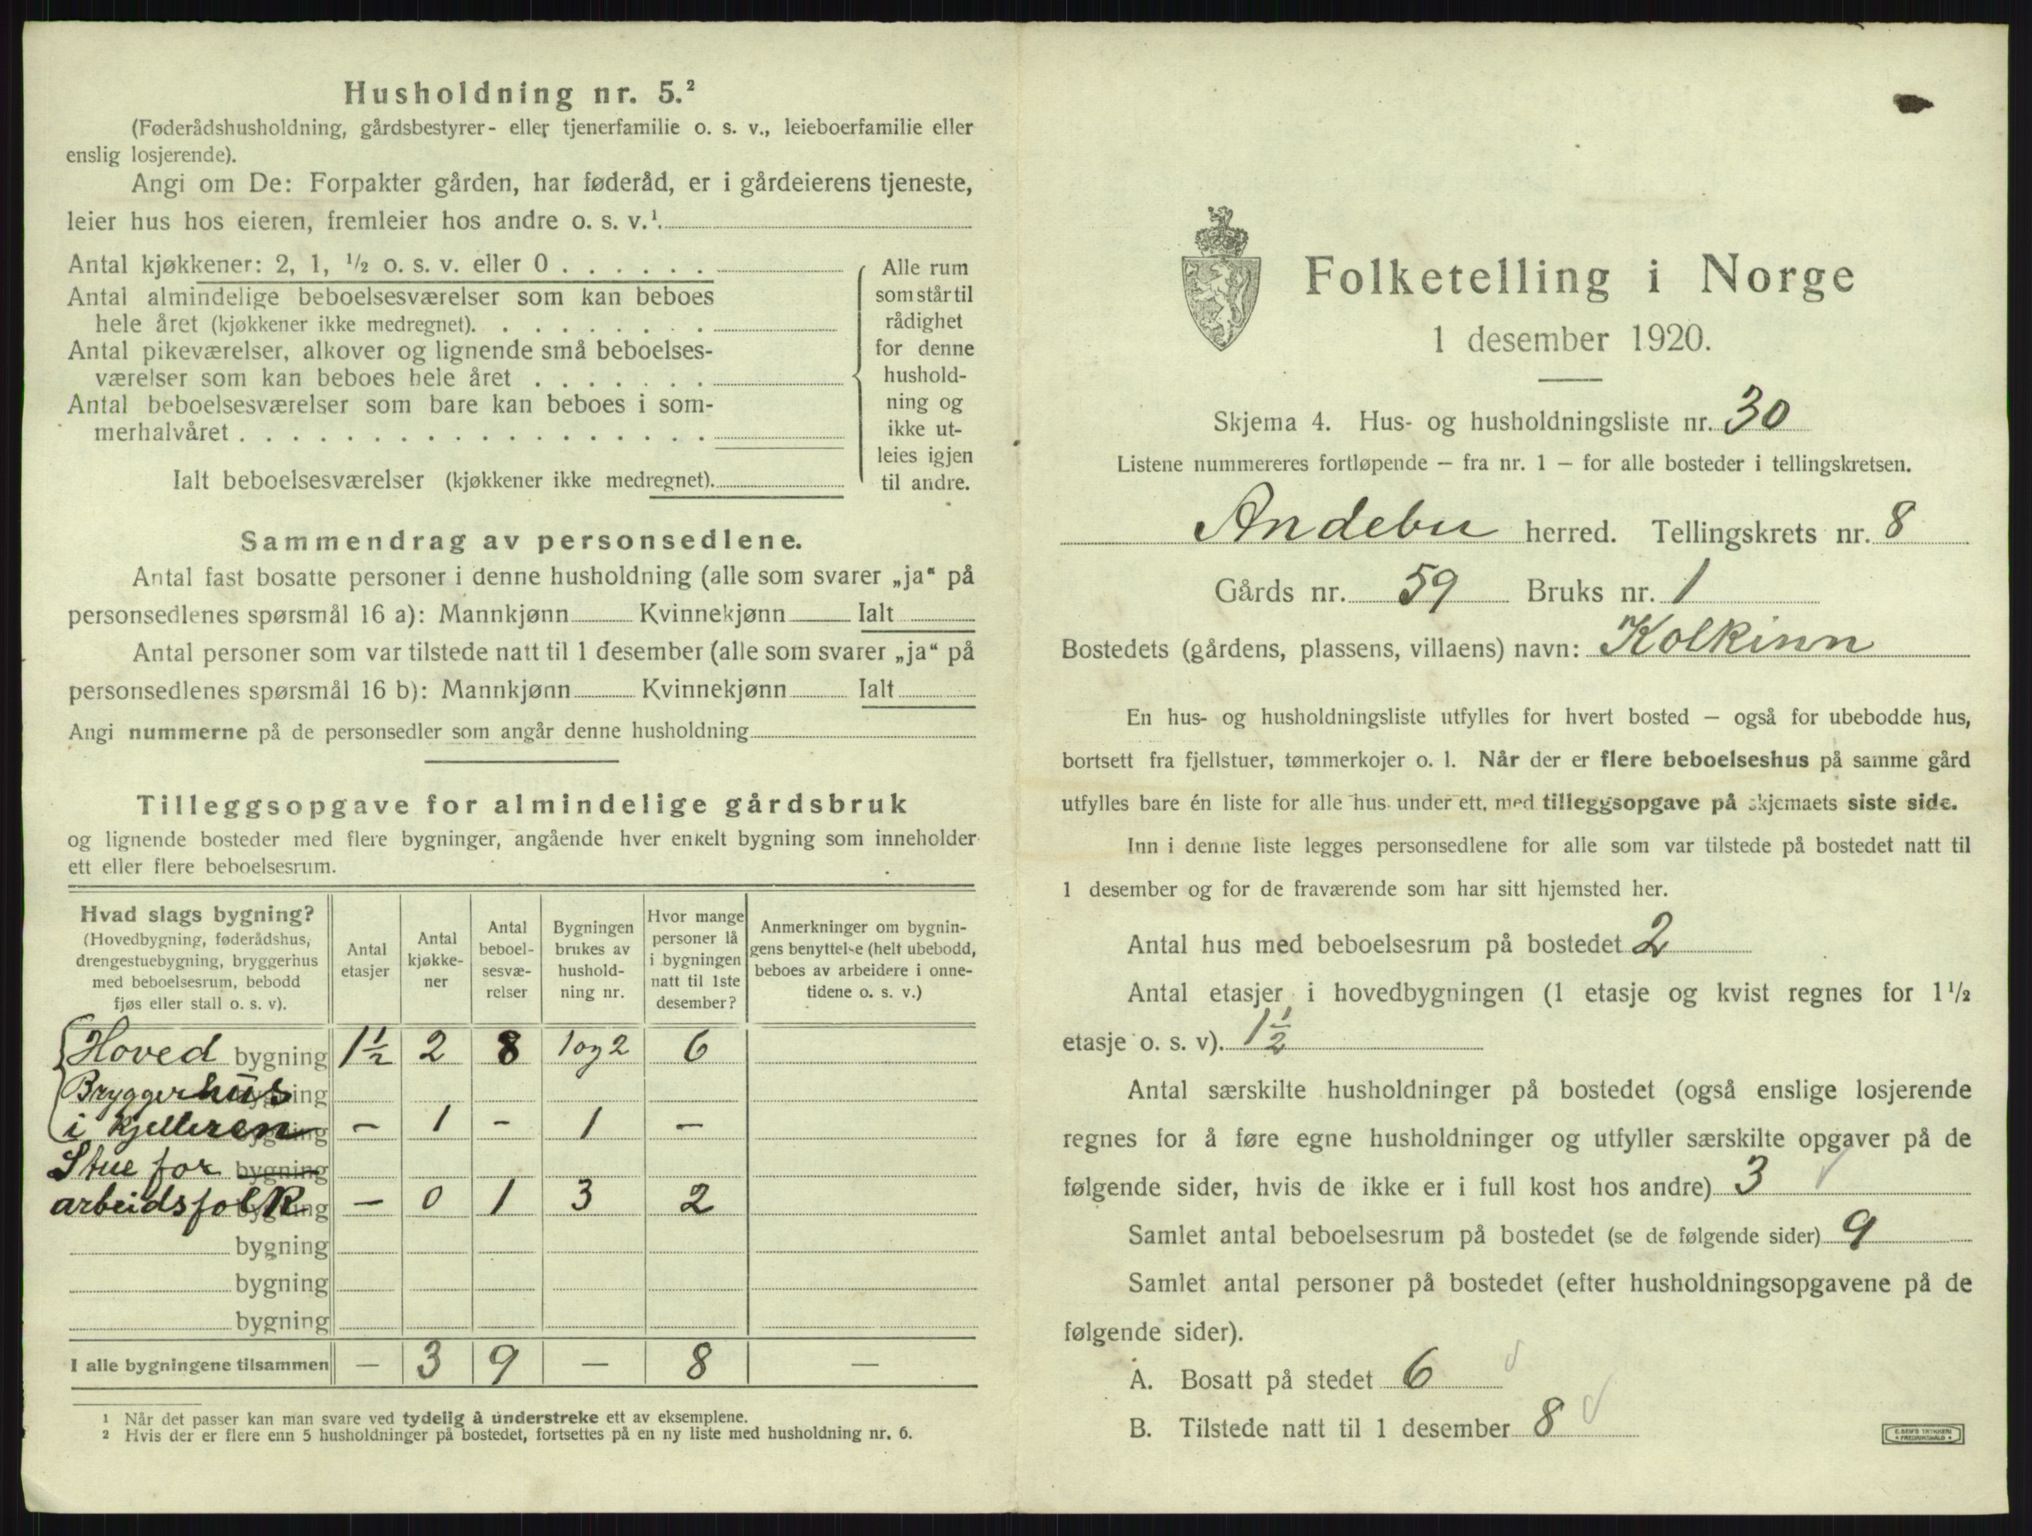 Husholdning nr. 5.²
(Føderådshusholdning, gårdsbestyrer- eller tjenerfamilie o. s. v., leieboerfamilie eller
enslig losjerende).
Angi om De: Forpakter gården, har føderåd, er i gårdeierens tjeneste,
leier hus hos eieren, fremleier hos andre o. s. v.¹.
Antal kjøkkener: 2, 1, ½ o. s. v. eller 0 . . . . . .
Antal almindelige beboelsesværelser som kan beboes
hele året (kjøkkener ikke medregnet). . . . . . . . .
Antal pikeværelser, alkover og lignende små beboelses-
værelser som kan beboes hele året . . . . . . .
Antal beboelsesværelser som bare kan beboes i som-
merhalvåret . . . . . . . . . . . . . . . . . .
Ialt beboelsesværelser (kjøkkener ikke medregnet).
Alle rum
som står til
rådighet
for denne
hushold-
ning og
ikke ut-
leies igjen
til andre.
Sammendrag av personsedlene.
Antal fast bosatte personer i denne husholdning (alle som svarer „ja“ på
personsedlenes spørsmål 16 a): Mannkjønn Kvinnekjønn Ialt
Antal personer som var tilstede natt til 1 desember (alle som svarer „ja“ på
personsedlenes spørsmål 16 b): Mannkjønn Kvinnekjønn Ialt
Angi nummerne på de personsedler som angår denne husholdning
Tilleggsopgave for almindelige gårdsbruk
og lignende bosteder med flere bygninger, angående hver enkelt bygning som inneholder
ett eller flere beboelsesrum.
Hvad slags bygning?
(Hovedbygning, føderådshus,
drengestuebygning, bryggerhus
med beboelsesrum, bebodd
fjøs eller stall o. s. v).
Antal
etasjer
Antal
kjøkke-
ner
Antal
beboel-
sesvæ-
relser
Bygningen
brukes av
hushold-
ning nr.
Hvor mange
personer lå
i bygningen
natt til 1ste
desember?
Anmerkninger om bygnin-
gens benyttelse (helt ubebodd,
beboes av arbeidere i onne-
tidene o. s. v.)
Hoved bygning 1½ 2 8 1 og 2 6
Bryggerhus bygning
i kjelleren bygning – 1 – 1 –
Stue for bygning
arbeidsfolk bygning – 0 1 3 2
bygning
bygning
bygning
I alle bygningene tilsammen — 3 9 — 8 —
¹ Når det passer kan man svare ved tydelig å understreke ett av eksemplene.
² Hvis der er flere enn 5 husholdninger på bostedet, fortsettes på en ny liste med husholdning nr. 6.
Folketelling i Norge
1 desember 1920.
Skjema 4. Hus- og husholdningsliste nr. 30
Listene nummereres fortløpende – fra nr. 1 – for alle bosteder i tellingskretsen.
Andebu herred. Tellingskrets nr. 8
Gårds nr. 59 Bruks nr. 1
Bostedets (gårdens, plassens, villaens) navn: Kolkinn
En hus- og husholdningsliste utfylles for hvert bosted – også for ubebodde hus,
bortsett fra fjellstuer, tømmerkojer o. l. Når der er flere beboelseshus på samme gård
utfylles bare én liste for alle hus under ett, med tilleggsopgave på skjemaets siste side.
Inn i denne liste legges personsedlene for alle som var tilstede på bostedet natt til
1 desember og for de fraværende som har sitt hjemsted her.
Antal hus med beboelsesrum på bostedet 2
Antal etasjer i hovedbygningen (1 etasje og kvist regnes for 1½
etasje o. s. v). 1½
Antal særskilte husholdninger på bostedet (også enslige losjerende
regnes for å føre egne husholdninger og utfyller særskilte opgaver på de
følgende sider, hvis de ikke er i full kost hos andre) 3
Samlet antal beboelsesrum på bostedet (se de følgende sider) 9
Samlet antal personer på bostedet (efter husholdningsopgavene på de
følgende sider).
A. Bosatt på stedet 6
B. Tilstede natt til 1 desember 8